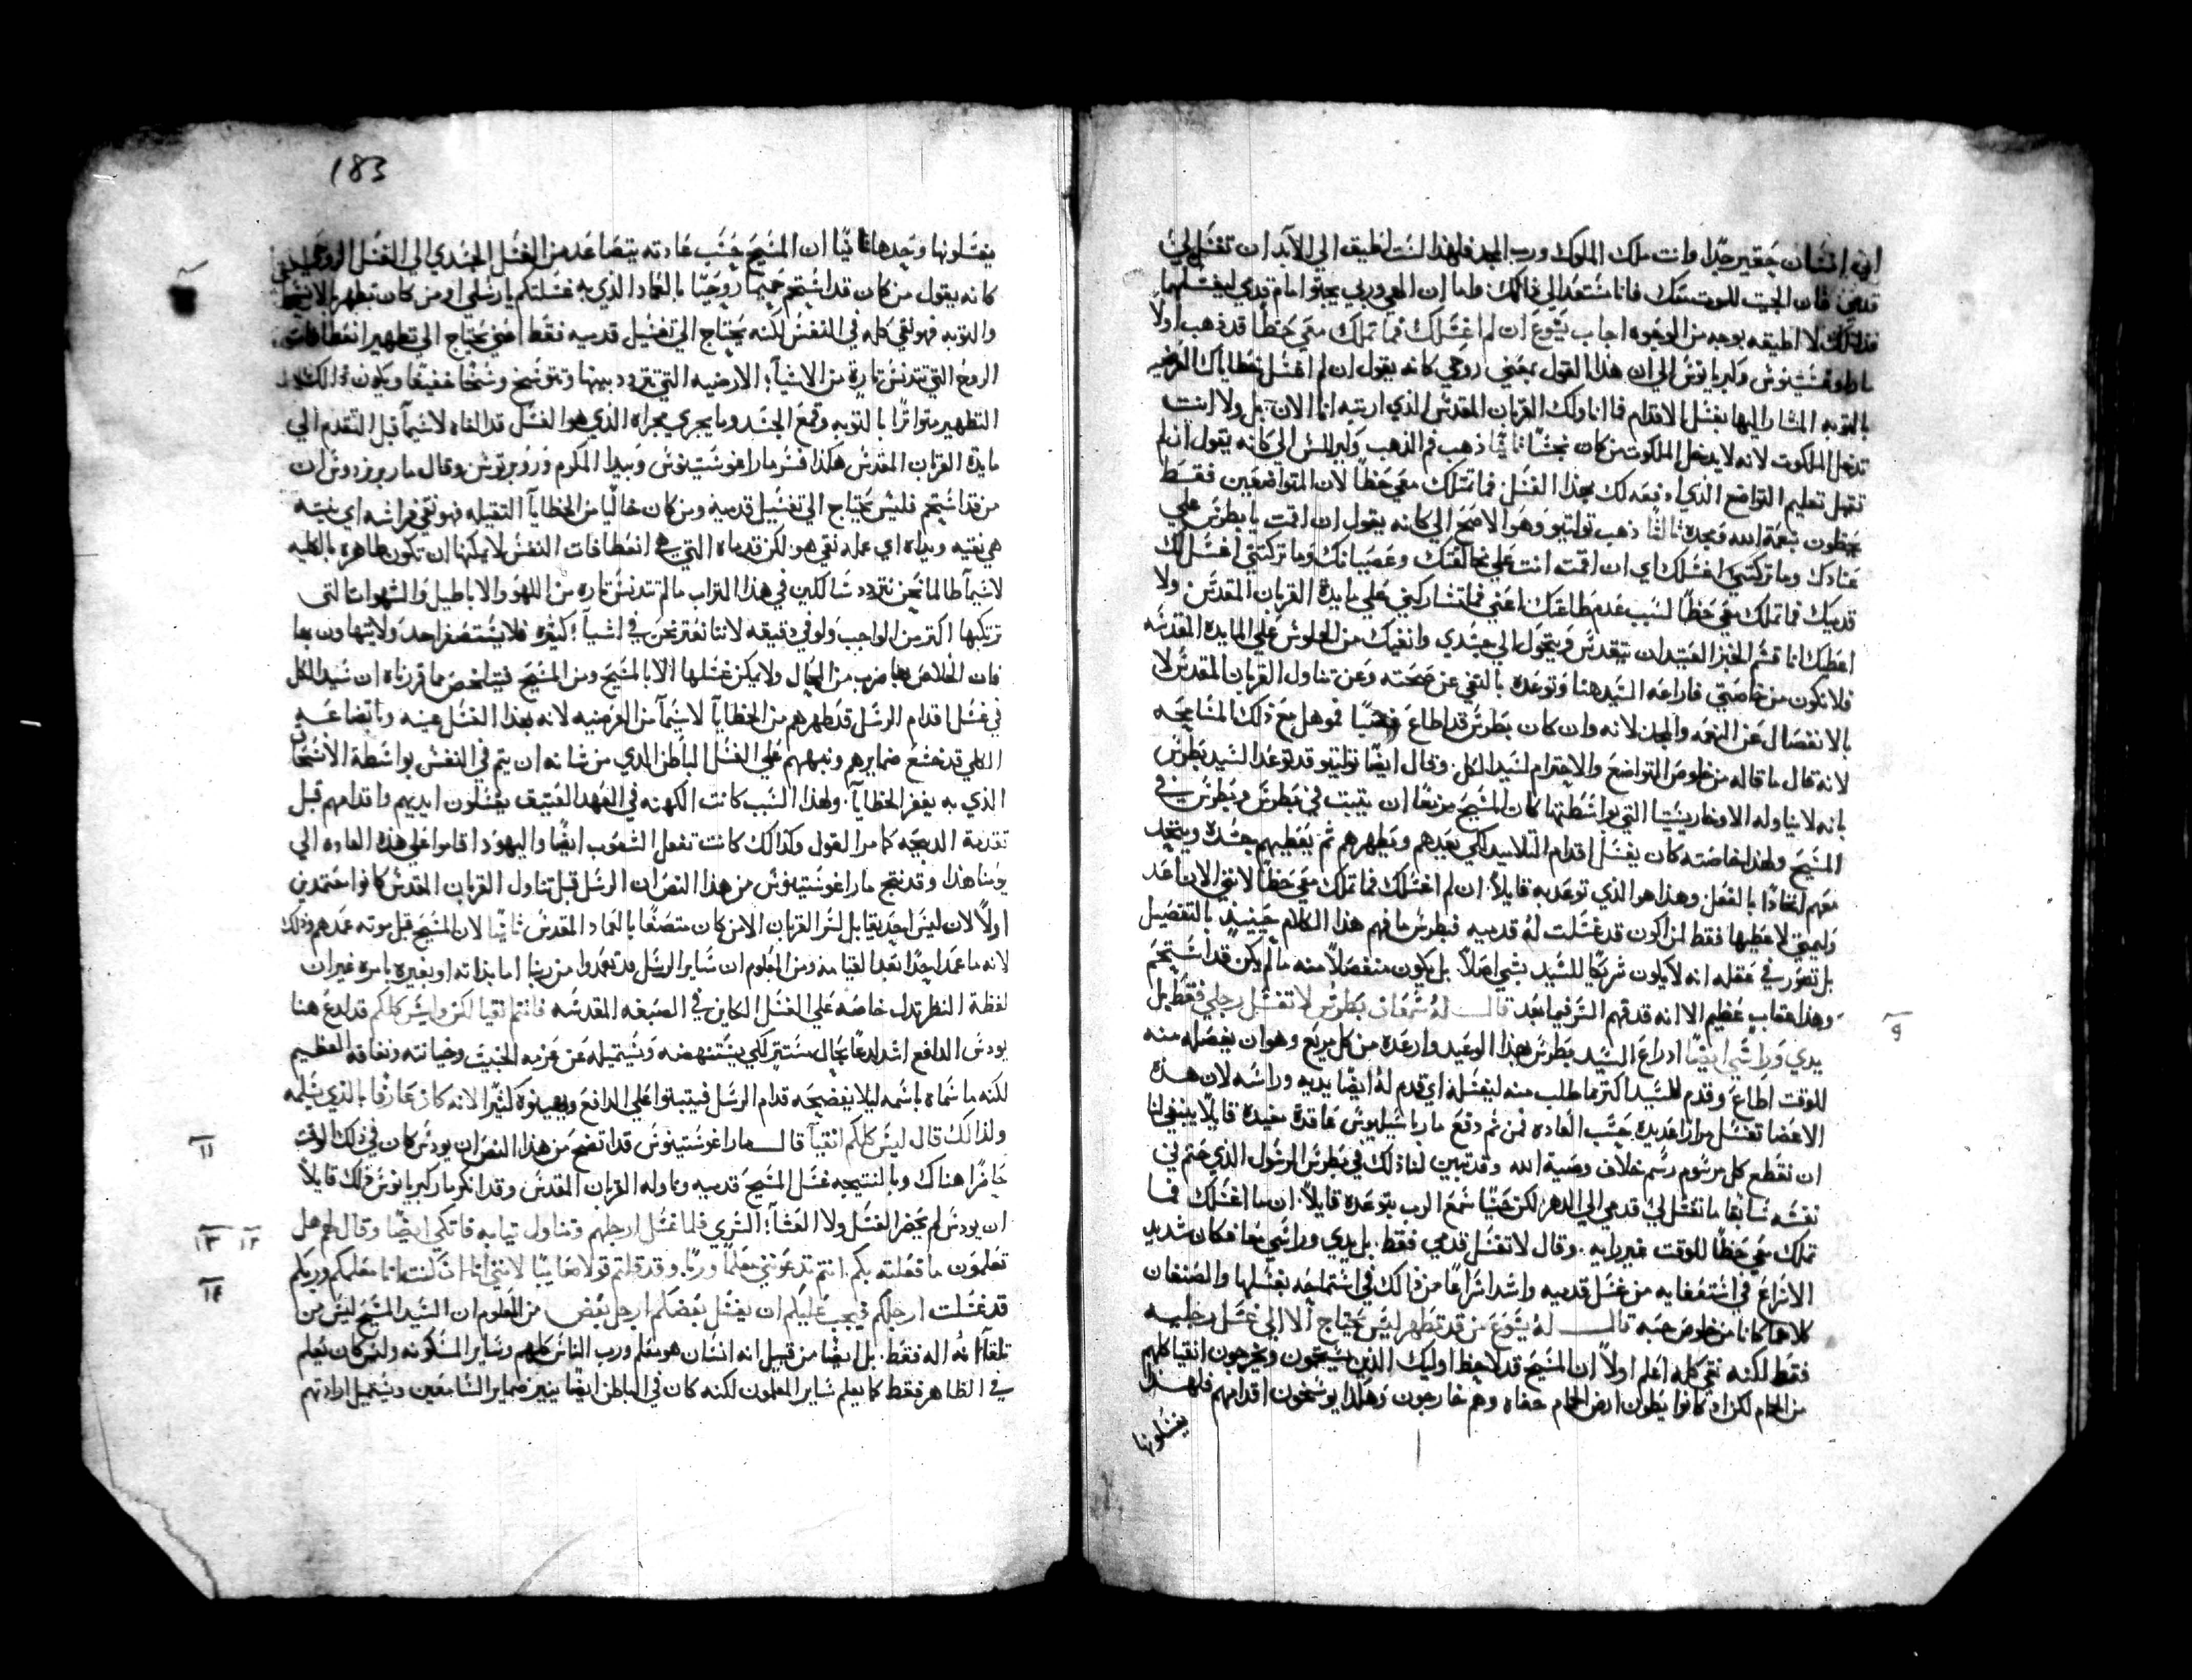 اني انسان حقير جدًا وانت ملك الملوك ورب المجد فلهذا لست اطيق الي الابد ان تغسل لي
قدمي فان احببت للموت معك فانا مستعد الي ذالك واما ان الهي وربي يجثو امام قدمي ليغسلهما
فذلك لا اطيقه بوجه من الوجوه اجاب يسوع ان لم اغسلك فما تملك معي حظًا قد ذهب اولًا
ماراوغسشينوس وكبريانوس الي ان هذا القول بمعني روحي كانه يقول ان لم اغسل خطاياك العرضيه
بالتوبه المشار اليها بغسل الاقدام فما اناولك القربان المقدس الذي ارتبه انا الان بل ولا انت
تدخل الملكوت لانه لا يدخل الملكوت من كان نجسًا ثانيًا ذهب فم الذهب وكيرللس الي كانه يقول ان لم
تقبل تعليم التواضع الذي ادفعه لك بهذا الغسل فما تملك معي حظًا لان المتواضعين فقط
يحظون بنعمة الله ومجده ثالثًا ذهب تولتيو وهو الاصح الي كانه يقول ان اقمت يا بطرس علي
عنادك وما تركتني اغسلك اي ان اقمت انت علي مخالفتك وعصيانك وما تركتني اغسل لك
قدميك فما تملك معي حظًا لسبب عدم طاعتك اعني فما تشاركني علي مايدة القربان المقدس ولا
اعطيك انا قسم الخبز العتيد ان يتقدس ويتحول الي جسدي وانفيك من الجلوس علي المايده المقدسه
فلا تكون من خاصتي فاراعه السيد هنا وتوعده بالنفي عن صحبته وعن تناول القربان المقدس لا
بالانفصال عن النعمه والمجد لانه وان كان بطرس قد اطاع فموهل مع ذلك المسامحه
لانه قال ما قاله من خلوص التواضع والاحترام لسيد الكل. وقال ايضًا تولتيو قد توعد السيد بطرس
بانه لا يناوله الاوخاريستيا التي بواسطتها كان المسيح مزمعًا ان يثبت في بطرس وبطرس في
المسيح ولهذا خاصته كان يغسل اقدام التلاميذ لكي يعدهم ويطهرهم ثم يعطيهم جسده ويتحد
معهم اتحادًا بالفعل وهذا هو الذي توعد به قايلًا ان لم اغسلك فما تملك معي حظًا لانني الان اعد
وليمتي لاعطيها فقط لمن اكون قد غسلت له قدميه فبطرس ما فهم هذا الكلام حينيذٍ بالتفصيل
بل تصور في عقله انه لا يكون شريكًا للسيد بشي اصلًا. بل يكون منفصلًا منه ما لم يكن قد استحم
وهذا عقاب عظيم الا انه قد فهم السر فيما بعد قال له سمعان بطرس لا تغسل رجلي فقط بل
٩
يدي وراسي ايضًا اراع السيد بطرس بهذا الوعيد وارعده من كل مريع وهو ان يفصله منه
للوقت اطاع وقدم للسيد اكثر مما طلب منه ليغسله اي قدم له ايضًا يديه وراسه لان هذه
الاعضا تغسل مرارًا عديده بحسب العاده فمن ثم دفع مار باسيليوس قاعدة مفيدة قايلًا ينبغي لنا
ان نقطع كل مرسوم رسم خلاف وصية الله وقد تبين لنا ذلك في بطرس الرسول الذي ختم في
نفسه سابقا ما تغسل لي قدمي الي الدهر لكن حينما سمع الرب يتوعده قايلًا ان ما اغسلك فما
تملك معي حظًا للوقت غير رايه. وقال لا تغسل قدمي فقط. بل يدي وراسي معا فكان شديد
الاسراع في استعفايه من غسل قدميه واشد اسراعًا من ذالك في استماحه بغسلها والصنفان
كلاهما كانا من خلوص حبه قال له يسوع من قد تطهر ليس يحتاج الا الي غسل رجليه
فقط لكنه نقي كله اعلم اولًا ان المسيح قد لاحظ اوليك الذين يستحمون ويخرجون انقيا كلهم
من الحمام لكن اذ كانوا يطون ارض الحمام حفاه وهم خارجون وهكذا يوسخون اقدامهم فلهذا
يغسلونها
183
يغسلونها وحدها ثانيًا ان المسيح حسب عادته يتصاعد من الغسل الجسدي الي الغسل الروحي
كانه يقول من كان قد استحم حميمًا روحيًا بالعماد الذي به غسلتكم يا رسلي او من كان تطهر بالانسحاق
والتوبه فهو نقي كله في النفس لكنه يحتاج الي تغسيل قدميه فقط اعني يحتاج الي تطهير انعطافات
الروح التي تتدنس تارةٍ من الاشياء الارضيه التي تتردد بينها وتتوسخ وسخًا خفيفًا ويكون ذالك
التطهير متواترًا بالتوبه وقمع الجسد وما يجري مجراه الذي هو الغسل قد القاه لاسيما قبل التقدم الي
مايدة القربان المقدس هكذا فسر ماراغوستينوس وبيدا المكرم وروبرتوس وقال مار برنردوس ان
من قد استحم فليس يحتاج الي تغسيل قدميه ومن كان خاليًا من الخطايا الثقيله فهو نقي فراشه اي نيته
هي نقيه ويداه اي عمله نقي هو لكن قدماه التي هي انعطافات النفس لا يمكنها ان تكون طاهره بالكليه
لاسيما طالما نحن نتردد سالكين في هذا التراب ما لم تتدنس تاره من اللهو والاباطيل والشهوات التي
ترتكبها اكثر من الواجب ولو في دقيقه لاننا نعثر نحن في اشيا كثيره فلا يستصغر احد ولا يتهاون بها
فان الخلاص بها ضرب من المحال ولا يمكن غسلها الا بالمسيح ومن المسيح فيتلخص مما قررناه ان سيد الكل
في غسل اقدام الرسل قد طهرهم من الخطايا لاسيما من العرضيه لانه بهذا الغسل عينه وباتضاعه
الكلي قد خشع ضمايرهم ونبههم علي الغسل الباطن الذي من شانه ان يتم في النفس بواسطة الانسحاق
الذي به يغفر الخطايا. ولهذا السبب كانت الكهنه في العهد العتيق يغسلون ايديهم واقدامهم قبل
تقدمة الذبيحه كما مر القول وكذالك كانت تفعل الشعوب ايضًا واليهود اقاموا علي هذه العاده الي
يومنا هذا وقد نتج ماراغوستينوس من هذا النص ان الرسل قبل تناول القربان المقدس كانوا معتمدين
اولًا لان ليس احد يقابل لسر القربان الا من كان متصفًا بالعماد المقدس ثانيًا لان المسيح قبل موته عمدهم وذلك
لانه ما عمد احدًا بعد القيامه ومن المعلوم ان ساير الرسل قد تعمدوا من ربنا اما بذاته او بغيره بامره غير ان
لفظة النظر تدل خاصه علي الغسل الكاين في الصبغه المقدسه فانتم انقيا لكن وليس كلكم قد لدغ هنا
يودس الدافع اشد لدغًا بحال مستتر لكي يستنهضه ويستميله عن عزمه الخبيث وخيانته ونفاقه العظيم
لكنه ما سماه باسمه ليلا يفضحه قدام الرسل فيثبتوا علي الدافع ويهينوه كثيرا لانه كان عارفًا بالذي يسلمه
١١
ولذالك قال ليس كلكم انقيا قال ماراغوستينوس قد اتضح من هذا النص ان يودس كان في ذلك الوقت
حاضرًا هناك وبالنتيجه غسل المسيح قدميه وناوله القربان المقدس وقد انكر مار كبريانوس ذلك قايلًا
١٢ ١٣
ان يودس لم يحضر الغسل ولا العشاء السري فلما غسل ارجلهم وتناول ثيابه فاتكي ايضًا وقال لهم هل
تعلمون ما فعلته بكم انتم تدعونني معلمًا وربًا. وقد قلتم قولًا صايبًا لانني انا
١٤
قد غسلت ارجلكم فيجب عليكم ان يغسل بعضكم ارجل بعض من المعلوم ان السيد المسيح ليس من
تلقاء انه اله فقط. بل ايضًا من قبيل انه انسان هو معلم ورب الناس كلهم وساير المسكونه ولئن كان يعلم
في الظاهر فقط كما يعلم ساير المعلمون لكنه كان في الباطن ايضًا ينير ضماير السامعين ويستميل ارادتهم